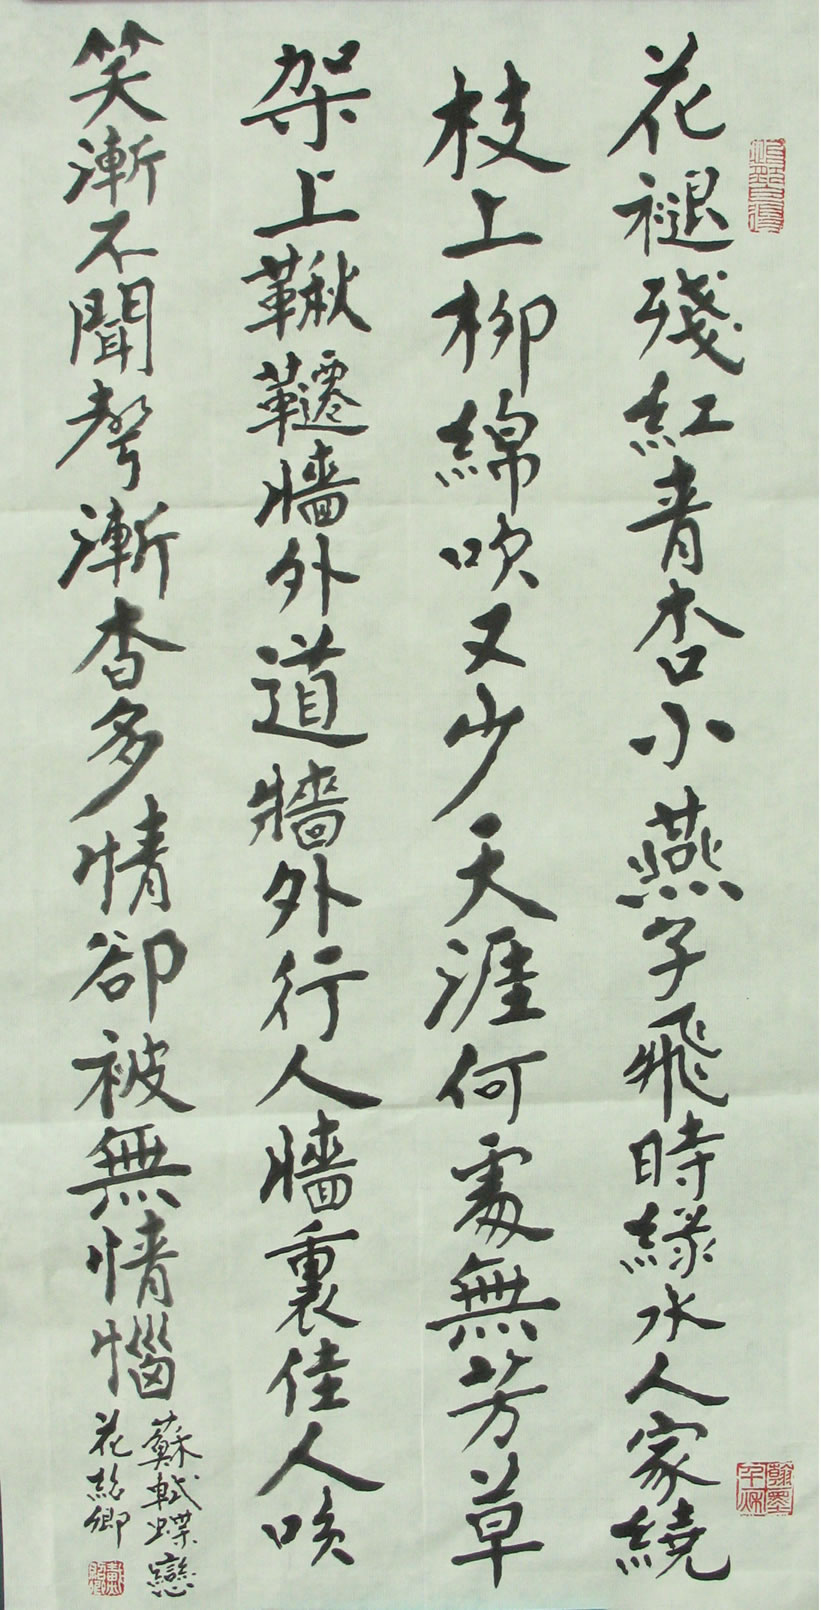 花褪殘紅青杏小燕子飛時緑水人家繞
枝上柳綿吹又少天涯何處無芳草
架上鞦韆牆外道牆外行人牆裏佳人咲
笑漸不聞聲漸杳多情卻被無情惱
蘇軾蝶戀
花紹卿